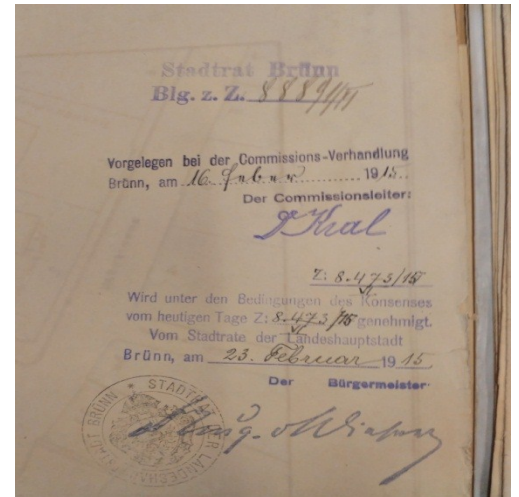 Stadtrat Brünn
Blg. z. Z. 8889/VI
Vorgelegen bei der Commissions-Verhandlung
Brünn, am 16. Feber 1915.
Der Commissionsleiter:
Dr Kral
Z: 8.473/15
Wird unter den Bedingungen des Konsenses
vom heutigen Tage Z: 8.473/15 genehmigt.
Vom Stadtrate der Landeshauptstadt
Brünn, am 23. Februar 1915
Der Bürgermeister
STADTRAT DER LANDESHAUPTSTADT BRÜNN